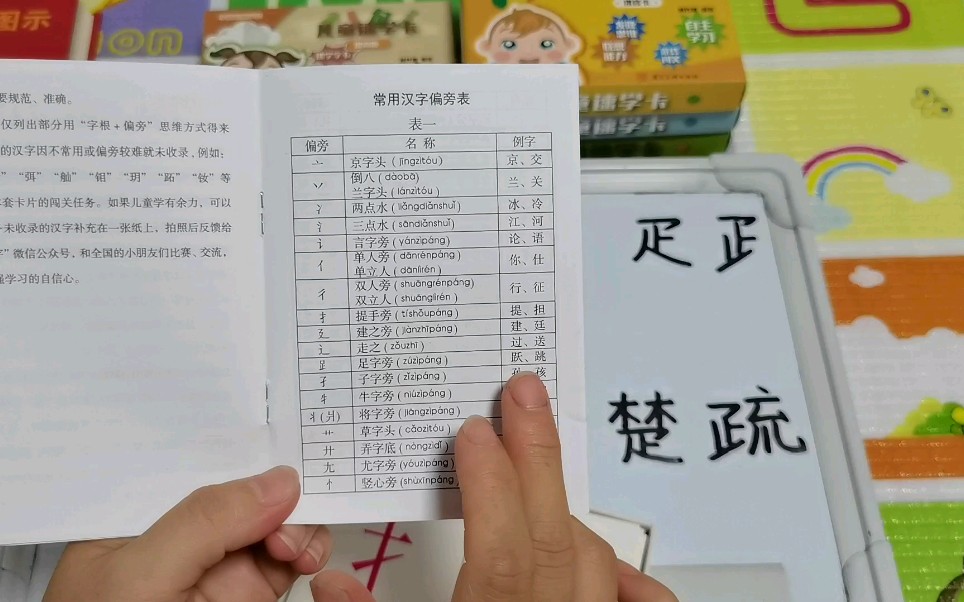 图示
ion
儿童速学卡
自主
学习
童速学卡
速学卡
要规范、准确。
仅列出部分用“字根+偏旁”思维方式得来
的汉字因不常用或偏旁较难就未收录,例如:
”“弭”“舢”“钼”“玥”“跖”“钕”等
本套卡片的闯关任务。如果儿童学有余力,可以
未收录的汉字补充在一张纸上,拍照后反馈给
字”微信公众号,和全国的小朋友们比赛、交流,
强学习的自信心。
常用汉字偏旁表
表一
偏旁 名称 例字
亠 京字头(jīngzìtóu) 京、交
丷 倒八(dàobā) 兰字头(lánzìtóu) 兰、关
冫 两点水(liǎngdiǎnshuǐ) 冰、冷
氵 三点水(sāndiǎnshuǐ) 江、河
讠 言字旁(yánzìpáng) 论、语
亻 单人旁(dānrénpáng) 单立人(dānlìrén) 你、仕
彳 双人旁(shuāngrénpáng) 双立人(shuānglìrén) 行、征
扌 提手旁(tíshǒupáng) 提、担
廴 建之旁(jiànzhīpáng) 建、廷
辶 走之(zǒuzhī) 过、送
⻊ 足字旁(zúzìpáng) 跃、跳
孑 子字旁(zǐzìpáng) 孩
牜 牛字旁(niúzìpáng)
丬(爿) 将字旁(jiàngzìpáng)
艹 草字头(cǎozìtóu)
廾 弄字底(nòngzìdǐ)
尢 尤字旁(yóuzìpáng)
忄 竖心旁(shùxīnpáng)
疋 𤴔
楚 疏